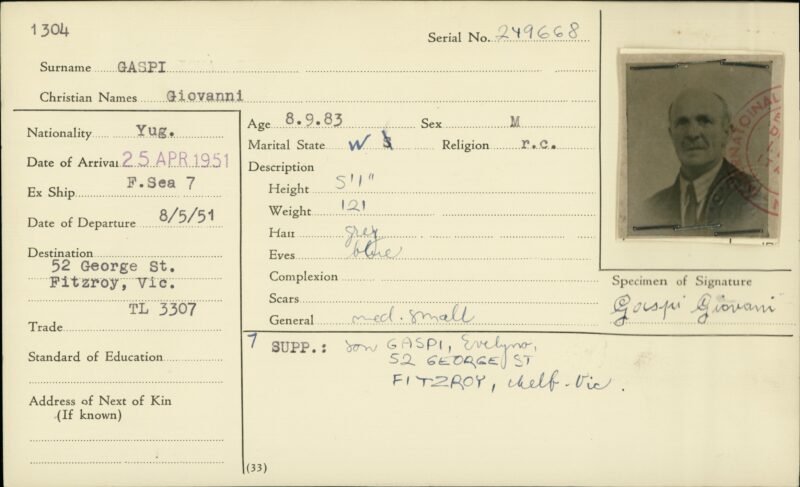 1304
Serial No. 249668
Surname GASPI
Christian Names Giovanni
Nationality Yug.
Date of Arrival 25 APR 1951
Ex Ship F.Sea 7
Date of Departure 8/5/51
Destination
52 George St.
Fitzroy, Vic.
TL 3307
Trade
Standard of Education
Address of Next of Kin
(If known)
Age 8.9.83 Sex M
Marital State W Religion r.c.
Description
Height 5'1"
Weight 121
Hair grey
Eyes blue
Complexion
Scars
General med. small
7 SUPP.: son GASPI, Evelyno,
52 GEORGE ST
FITZROY, Melb. Vic.
(33)
Specimen of Signature
Gaspi Giovani